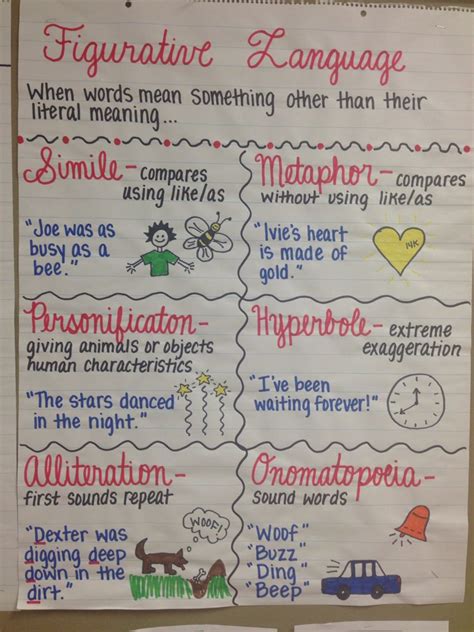 Figurative Language
When words mean something other than their
literal meaning...
Simile- compares
using like/as
"Joe was as
busy as a
bee."
Metaphor- compares
without using like/as
"Ivie's heart
is made of
gold."
14K
Personificaton-
giving animals or objects
human characteristics
"The stars danced
in the night."
Hyperbole- extreme
exaggeration
"I've been
waiting forever!"
Alliteration-
first sounds repeat
"Dexter was
digging deep
down in the
dirt."
WOOF!
Onomatopoeia-
sound words
"Woof"
"Buzz"
"Ding"
"Beep"